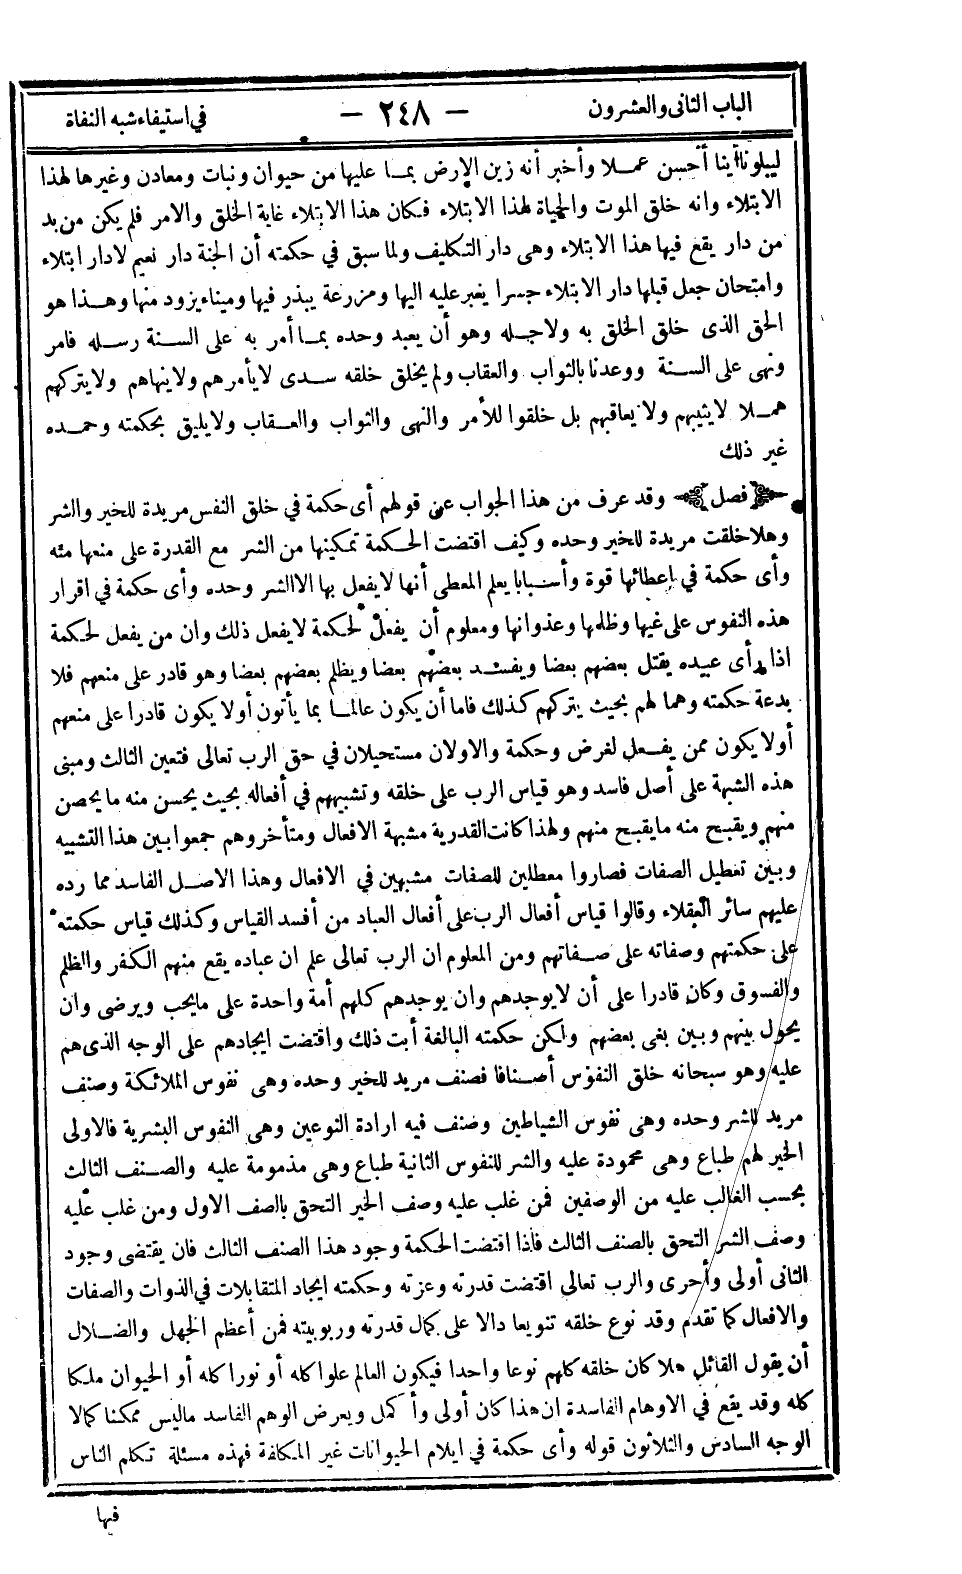 الباب الثانى والعشرون
— ٢٤٨ —
فى استيفاء شبه النفاة
ليبلونا أينا أحسن عملا وأخبر أنه زين الارض بما عليها من حيوان ونبات ومعادن وغيرها لهذا
الابتلاء وانه خلق الموت والحياة لهذا الابتلاء فكان هذا الابتلاء غاية الخلق والامر فلم يكن من بد
من دار يقع فيها هذا الابتلاء وهى دار التكليف ولما سبق في حكمته أن الجنة دار نعيم لادار ابتلاء
وامتحان جعل قبلها دار الابتلاء جسرا يعبر عليه اليها ومزرعة يبذر فيها وميناء يزود منها وهذا هو
الحق الذى خلق الخلق به ولاجله وهو أن يعبد وحده بما أمر به على السنة رسله فامر
ونهى على السنة ووعدنا بالثواب والعقاب ولم يخلق خلقه سدى لا يأمرهم ولا ينهاهم ولا يتركهم
هملا لا يثيبهم ولا يعاقبهم بل خلقوا للأمر والنهى والثواب والعقاب ولا يليق بحكمته وحمده
غير ذلك
﴿فصل﴾ وقد عرف من هذا الجواب عن قولهم أى حكمة في خلق النفس مريدة للخير والشر
وهلا خلقت مريدة للخير وحده وكيف اقتضت الحكمة تمكينها من الشر مع القدرة على منعها منه
وأى حكمة في إعطائها قوة وأسبابا يعلم المعطى أنها لا يفعل بها الا الشر وحده وأى حكمة في اقرار
هذه النفوس على غيها وظلمها وعدوانها ومعلوم أن يفعل لحكمة لا يفعل ذلك وان من يفعل لحكمة
اذا رأى عبيده يقتل بعضهم بعضا ويفسد بعضهم بعضا ويظلم بعضهم بعضا وهو قادر على منعهم فلا
بدعة حكمته وهما لهم بحيث يتركهم كذلك فاما أن يكون عالما بما يأتون أولا يكون قادرا على منعهم
أولا يكون ممن يفعل لغرض وحكمة والاولان مستحيلان في حق الرب تعالى فتعين الثالث ومبنى
هذه الشبهة على أصل فاسد وهو قياس الرب على خلقه وتشبيههم في أفعاله بحيث يحسن منه ما يحصن
منهم ويقبح منه ما يقبح منهم ولهذا كانت القدرية مشبهة الافعال ومتأخروهم جمعوا بين هذا التشبيه
وبين تعطيل الصفات فصاروا معطلين للصفات مشبهين في الافعال وهذا الاصل الفاسد مما رده
عليهم سائر العقلاء وقالوا قياس أفعال الرب على أفعال العباد من أفسد القياس وكذلك قياس حكمته
على حكمتهم وصفاته على صفاتهم ومن المعلوم ان الرب تعالى علم ان عباده يقع منهم الكفر والظلم
والفسوق وكان قادرا على أن لا يوجدهم وان يوجدهم كلهم أمة واحدة على ما يحب ويرضى وان
يحول بينهم وبين بغى بعضهم ولكن حكمته البالغة أبت ذلك واقتضت ايجادهم على الوجه الذى هم
عليه وهو سبحانه خلق النفوس أصنافا فصنف مريد للخير وحده وهى نفوس الملائكة وصنف
مريد للشر وحده وهى نفوس الشياطين وصنف فيه ارادة النوعين وهى النفوس البشرية فالاولى
الخير لهم طباع وهى محمودة عليه والشر للنفوس الثانية طباع وهى مذمومة عليه والصنف الثالث
بحسب الغالب عليه من الوصفين فمن غلب عليه وصف الخير التحق بالصف الاول ومن غلب عليه
وصف الشر التحق بالصنف الثالث فاذا اقتضت الحكمة وجود هذا الصنف الثالث فان يقتضى وجود
الثانى أولى وأحرى والرب تعالى اقتضت قدرته وعزته وحكمته ايجاد المتقابلات في الذوات والصفات
والافعال كما تقدم وقد نوع خلقه تنويعا دالا على كمال قدرته وربوبيته فمن أعظم الجهل والضلال
أن يقول القائل هلا كان خلقه كلهم نوعا واحدا فيكون العالم علوا كله أو نورا كله أو الحيوان ملكا
كله وقد يقع في الاوهام الفاسدة ان هذا كان أولى وأكمل ويعرض الوهم الفاسد ماليس ممكنا كمالا
الوجه السادس والثلاثون قوله وأى حكمة في ايلام الحيوانات غير المكلفة فهذه مسئلة تكلم الناس
فيها